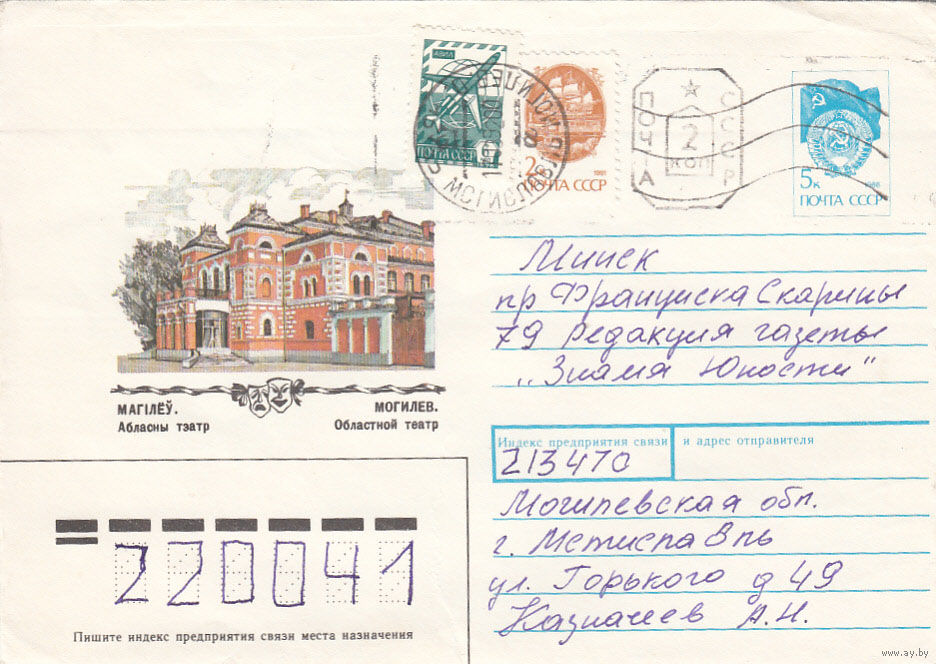 АВИА
ПОЧТА СССР
2к
1991
ПОЧТА СССР
ПОЧТА
2
КОП
СССР
5к
1988
ПОЧТА СССР
МСТИСЛАВЛЬ
Минск
пр Франциска Скарины
79 Редакция газеты
„Знамя Юности"
МАГІЛЁЎ.
Абласны тэатр
МОГИЛЕВ.
Областной театр
Индекс предприятия связи
и адрес отправителя
213470
Могилевская обл.
г. Мстиславль
ул. Горького д 49
Казначеев А.Н.
220041
Пишите индекс предприятия связи места назначения
www.ay.by